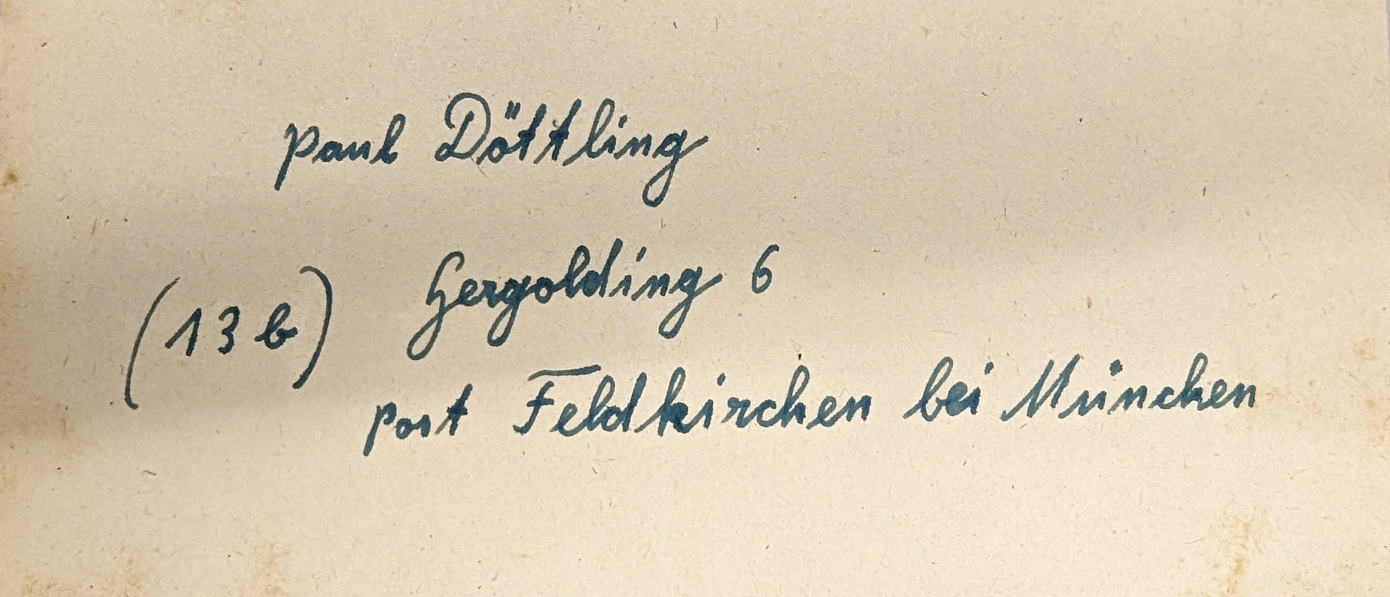 Paul Döttling
(13b) Gergolding 6
Post Feldkirchen bei München